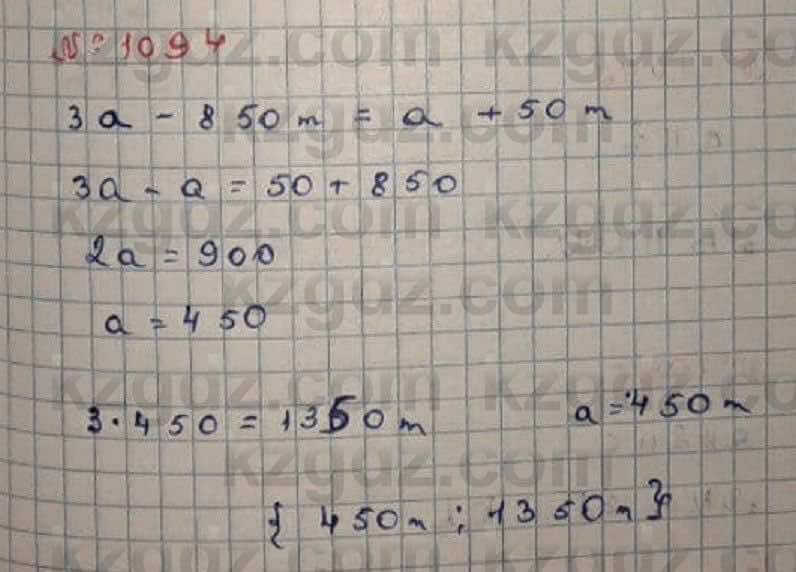 № 1094
3a - 850 m = a + 50 m
3a - a = 50 + 850
2a = 900
a = 450
3 · 450 = 1350 m a = 450 m
{ 450 m ; 1350 m }
kzgdz.com